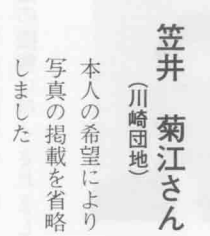 笠井　菊江さん
（川崎団地）
本人の希望により
写真の掲載を省略
しました